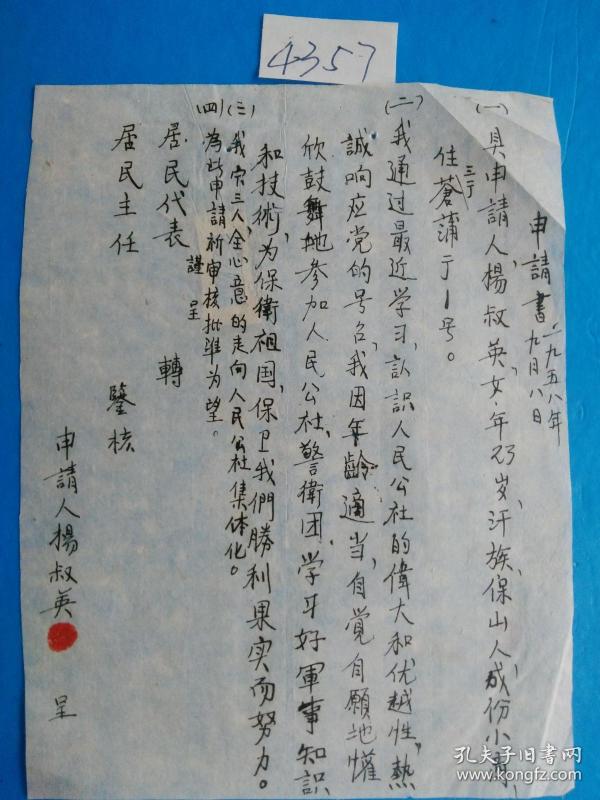 4357
申請書
一九五八年
九月八日
(一)具申請人楊叔英,女,年23岁,汗族,保山人,成份小
住蒼蒲亍1号。
三亍
(二)我通过最近学习,認識人民公社的偉大和优越性,热
誠响应党的号召,我因年齡適当,自覚自願地懽
欣鼓舞地参加人民公社,警衛团,学习好軍事知識
和技術,为保衛祖国,保卫我們勝利果实而努力。
(三)我家三人,全心意的走向人民公社集体化。
(四)為此申請祈審核批准为望。
謹呈
居民代表 轉
居民主任 鑒核
申請人楊叔英 呈
孔夫子旧书网
www.kongfz.com